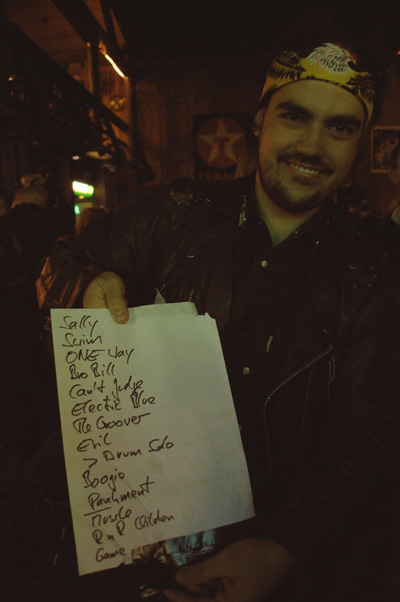 TEXACO
Sally
Swim
ONE Way
Bro Bill
Can't Judge
Electric Blue
The Groover
Evil
> Drum Solo
Boogie
Parchment
Muscle
R n R Children
Game